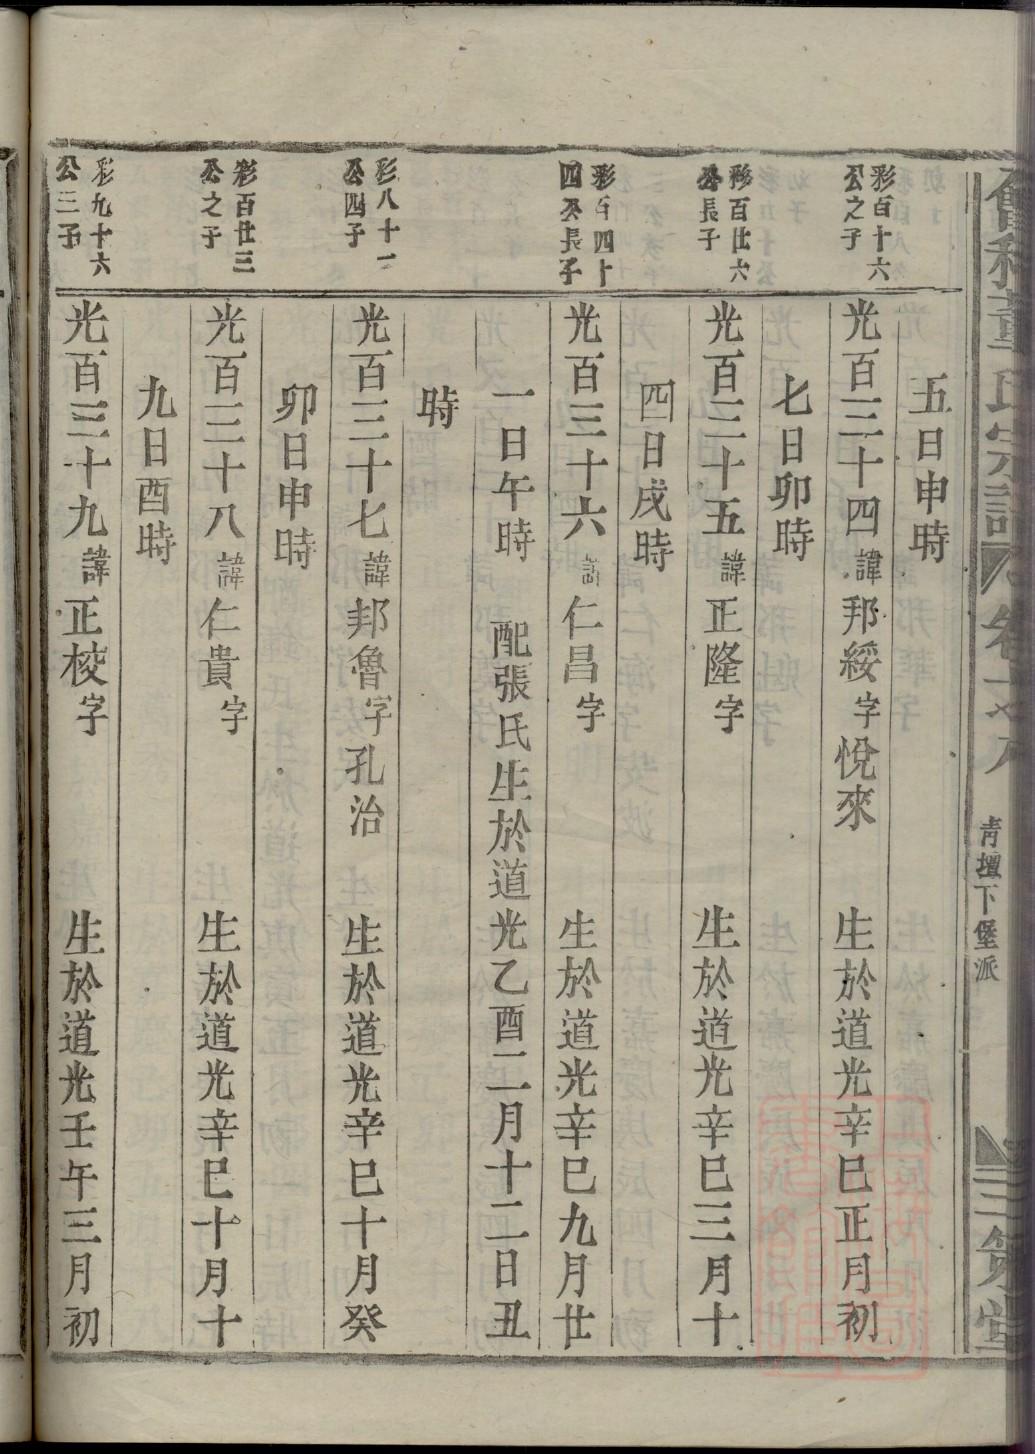 董氏宗譜
卷之
青壇下堡派
三策堂
五日申時
彩百十六
公之子
光百三十四諱邦綏字悅來 生於道光辛巳正月初
七日卯時
彩百廿六
公長子
光百三十五諱正隆字 生於道光辛巳三月十
四日戌時
彩百四十
四公長子
光百三十六諱仁昌字 生於道光辛巳九月廿
一日午時 配張氏生於道光乙酉二月十二日丑
時
彩八十一
公四子
光百三十七諱邦魯字孔治 生於道光辛巳十月癸
卯日申時
彩百廿三
公之子
光百三十八諱仁貴字 生於道光辛巳十月十
九日酉時
彩九十六
公三子
光百三十九諱正校字 生於道光壬午三月初